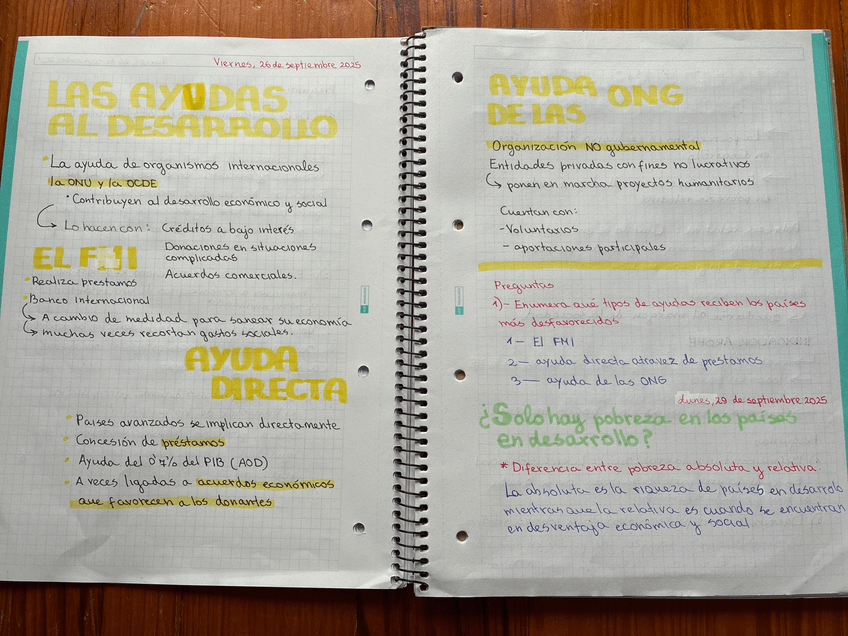 Viernes, 26 de septiembre 2025
LAS AYUDAS
AL DESARROLLO
La ayuda de organismos internacionales
la ONU y la OCDE
• Contribuyen al desarrollo económico y social
Lo hacen con: Créditos a bajo interés
Donaciones en situaciones
complicadas
Acuerdos comerciales.
EL FMI
• Realiza prestamos
• Banco internacional
A cambio de medidad para sanear su economía
muchas veces recortan gastos sociales.
AYUDA
DIRECTA
• Países avanzados se implican directamente
• Concesión de préstamos
• Ayuda del 0'7% del PIB (AOD)
• A veces ligadas a acuerdos económicos
que favorecen a los donantes
AYUDA ONG
DE LAS
Organización NO gubernamental
Entidades privadas con fines no lucrativos
ponen en marcha proyectos humanitarios
Cuentan con:
- Voluntarios
- aportaciones participales
Preguntas
1)- Enumera qué tipos de ayudas reciben los países
más desfavorecidos
1- El FMI
2- ayuda directa atravez de prestamos
3- ayuda de las ONG
Lunes, 29 de septiembre 2025
¿Solo hay pobreza en los países
en desarrollo?
* Diferencia entre pobreza absoluta y relativa
La absoluta es la riqueza de países en desarrollo
mientras que la relativa es cuando se encuentran
en desventaja económica y social